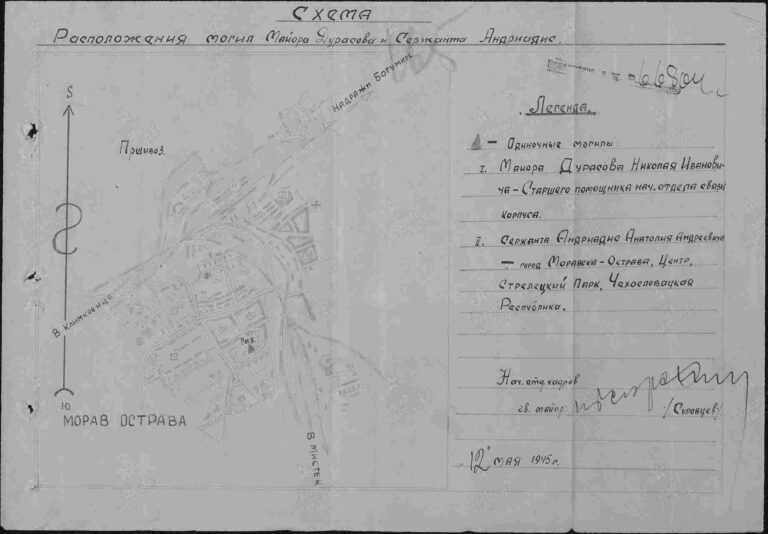 Схема
Расположения могил Майора Дурасова и Сержанта Андриадис.
6680и
S
Пршивоз
На Дражи Богумин
В Климковице
Р и 3.
Ю
МОРАВ ОСТРАВА
В Мистек
Легенда.
– Одиночные могилы:
I. Майора Дурасова Николая Иванови-
ча – Старшего помощника нач. отдела связи
корпуса.
II. Сержанта Андриадис Анатолия Андреевича
– город Моравска-Острава, Центр,
Стрелецкий Парк, Чехословацкая
Республика.
Нач. отд. кадров
гв. майор: /Суровцев/
"12" мая 1945 г.